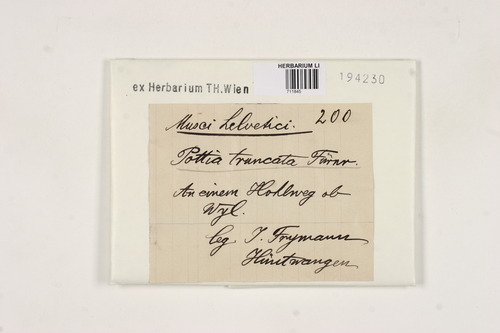 HERBARIUM LI
711845
194230
ex Herbarium TH.Wien
Musci helvetici. 200
Pottia truncata Fürnr.
An einem Hohlweg ob
Wyl.
leg J. Frymann
Hüntwangen